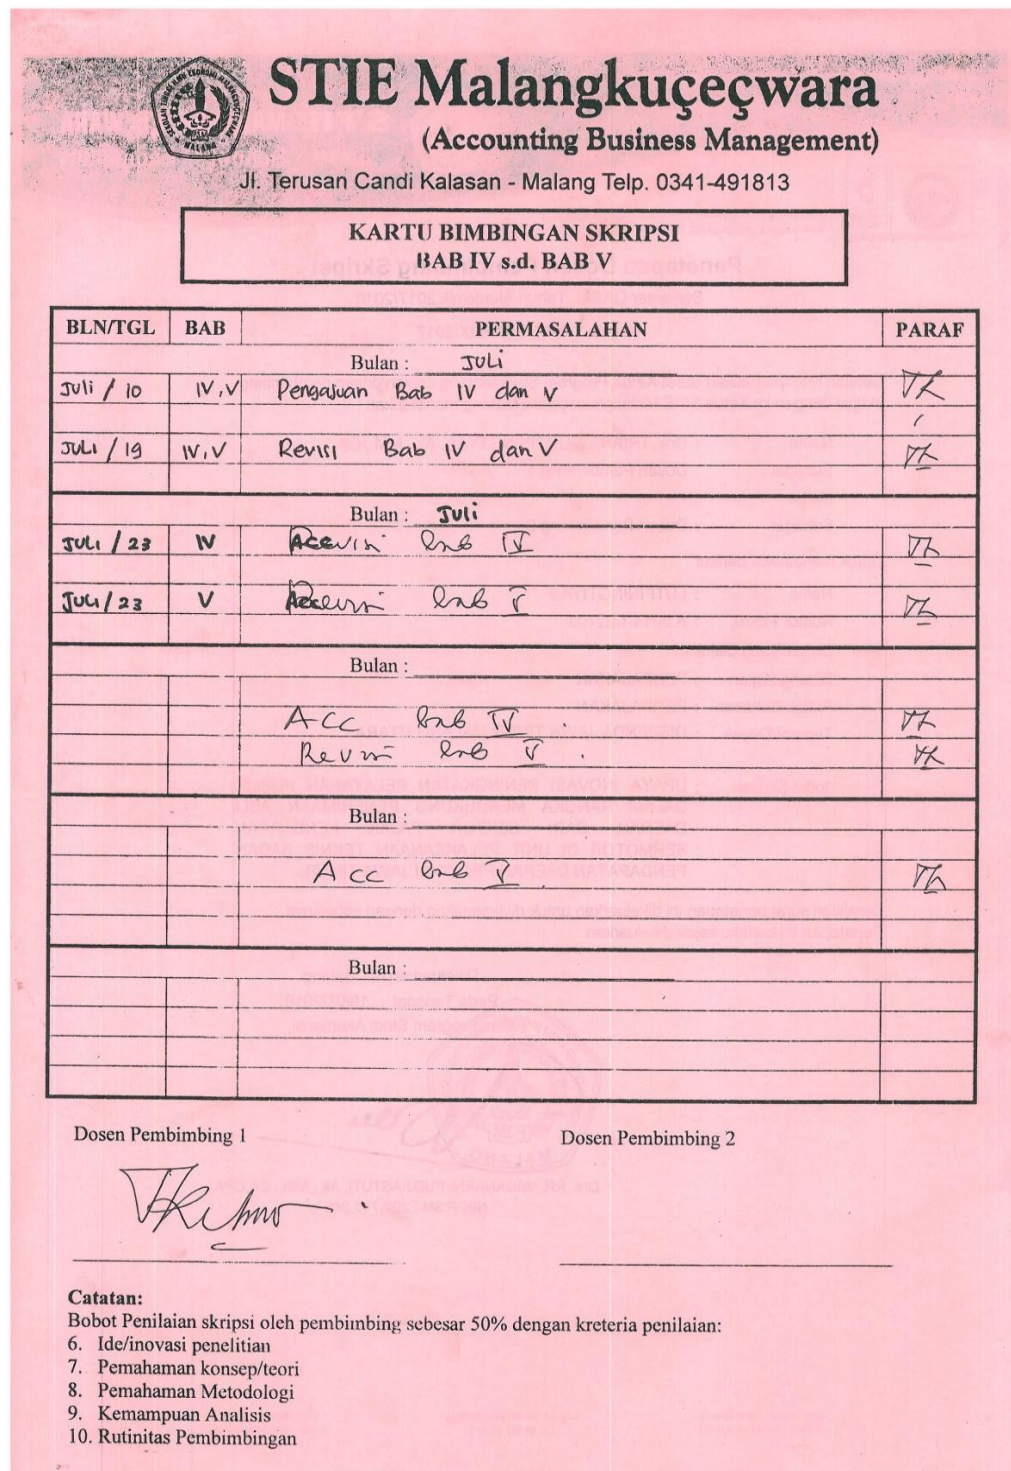 STIE Malangkuçeçwara
(Accounting Business Management)
Jl. Terusan Candi Kalasan - Malang Telp. 0341-491813
KARTU BIMBINGAN SKRIPSI
BAB IV s.d. BAB V
BLN/TGL BAB PERMASALAHAN PARAF
Bulan : JULI
Juli / 10 IV,V Pengajuan Bab IV dan V
JULI / 19 IV,V Revisi Bab IV dan V
Bulan : Juli
JULI / 23 IV Revisi bab IV
JULI / 23 V Revisi bab V
Bulan :
ACC bab IV .
Revisi bab V .
Bulan :
Acc bab V .
Bulan :
Dosen Pembimbing 1 Dosen Pembimbing 2
Catatan:
Bobot Penilaian skripsi oleh pembimbing sebesar 50% dengan kreteria penilaian:
6. Ide/inovasi penelitian
7. Pemahaman konsep/teori
8. Pemahaman Metodologi
9. Kemampuan Analisis
10. Rutinitas Pembimbingan